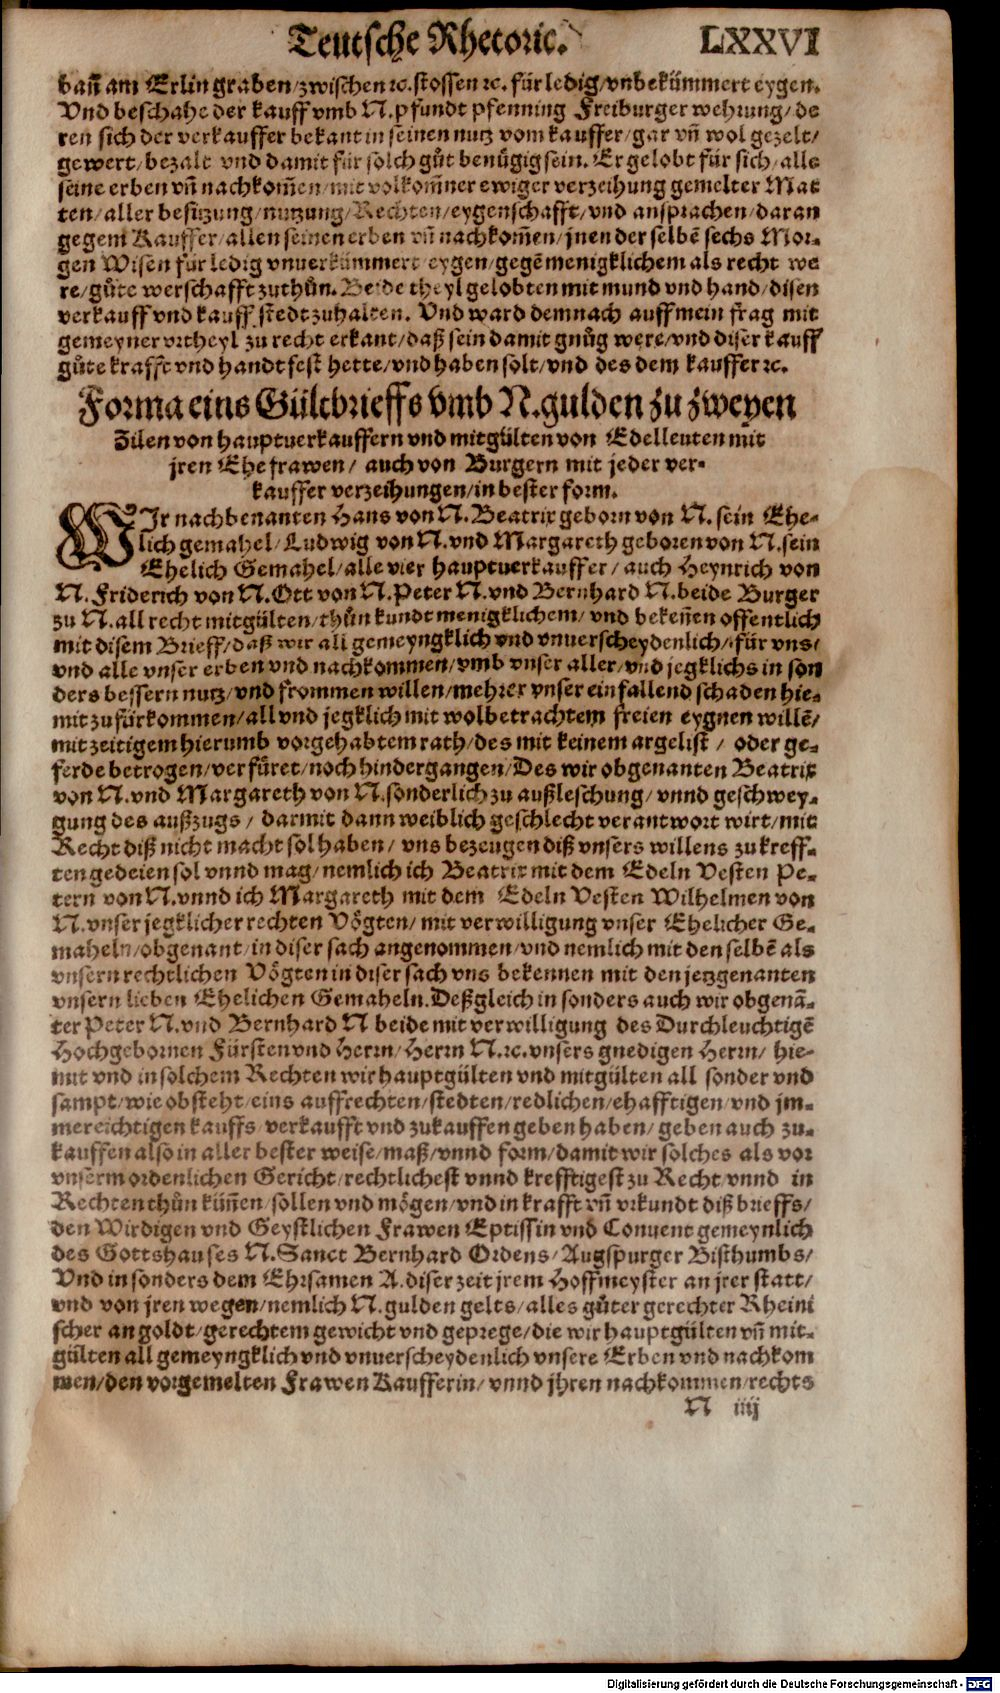 Teutsche Rhetoric. LXXVI
bañ am Erlin graben/zwischen ꝛc. stossen ꝛc. für ledig/vnbekümmert eygen.
Vnd beschahe der kauff vmb N. pfundt pfenning Freiburger wehrung/de
ren sich der verkauffer bekant in seinen nutz vom kauffer/gar vñ wol gezelt/
gewert/bezalt vnd damit für solch gůt benůgig sein. Er gelobt für sich/alle
seine erben vñ nachkom̃en/mit volkom̃ner ewiger verzeihung gemelter Mat
ten/aller besitzung/nutzung/Rechten/eygenschafft/vnd ansprachen/daran
gegem Kauffer/allen seinen erben vñ nachkom̃en/jnen der selbẽ sechs Mor-
gen Wisen für ledig vnuerkümmert eygen/gegẽ menigklichem als recht we
re/gůte werschafft zuthůn. Beide theyl gelobten mit mund vnd hand/disen
verkauff vnd kauff stedt zuhalten. Vnd ward demnach auff mein frag mit
gemeyner vrtheyl zu recht erkant/daß sein damit gnůg were/vnd diser kauff
gůte krafft vnd handtfest hette/vnd haben solt/vnd des dem kauffer ꝛc.
Forma eins Gültbrieffs vmb N. gulden zu zweyen
Zilen von hauptuerkauffern vnd mitgülten von Edelleuten mit
jren Ehefrawen/ auch von Burgern mit jeder ver-
kauffer verzeihungen/in bester form.
WIr nachbenanten Hans von N. Beatrix geborn von N. sein Ehe-
lich gemahel/Ludwig von N. vnd Margareth geboren von N. sein
Ehelich Gemahel/alle vier hauptuerkauffer/ auch Heynrich von
N. Friderich von N. Ott von N. Peter N. vnd Bernhard N. beide Burger
zu N. all recht mitgülten/thůn kundt menigklichem/ vnd bekeñen offentlich
mit disem Brieff/daß wir all gemeyngklich vnd vnuerscheydenlich/für vns/
vnd alle vnser erben vnd nachkommen/vmb vnser aller/vnd jegklichs in son
ders bessern nutz/vnd frommen willen/mehrer vnser einfallend schaden hie-
mit zu fürkommen/all vnd jegklich mit wolbetrachtem freien eygnen willẽ/
mit zeitigem hierumb vorgehabtem rath/des mit keinem argelist / oder ge-
ferde betrogen/verfüret/noch hindergangen/Des wir obgenanten Beatrix
von N. vnd Margareth von N. sonderlich zu außleschung/ vnnd geschwey-
gung des außzugs / darmit dann weiblich geschlecht verantwort wirt/mit
Recht diß nicht macht sol haben/ vns bezeugen diß vnsers willens zu kreff-
ten gedeien sol vnnd mag/nemlich ich Beatrix mit dem Edeln Vesten Pe-
tern von N. vnnd ich Margareth mit dem Edeln Vesten Wilhelmen von
N. vnser jegklicher rechten Vögten/ mit verwilligung vnser Ehelicher Ge-
maheln/obgenant/in diser sach angenommen/vnd nemlich mit den selbẽ als
vnsern rechtlichen Vögten in diser sach vns bekennen mit den jetzgenanten
vnsern lieben Ehelichen Gemaheln. Deßgleich in sonders auch wir obgenã-
ter Peter N. vnd Bernhard N beide mit verwilligung des Durchleuchtigẽ
Hochgebornen Fürsten vnd Herrn/Herrn N. ꝛc. vnsers gnedigen Herrn/ hie-
mit vnd in solchem Rechten wir hauptgülten vnd mitgülten all sonder vnd
sampt/wie obsteht/eins auffrechten/stedten/redlichen/ehafftigen/vnd jm-
mereichtigen kauffs verkaufft vnd zukauffen geben haben/ geben auch zu-
kauffen also in aller bester weise/maß/vnnd form/damit wir solches als vor
vnserm ordenlichen Gericht/rechtlichest vnnd krefftigest zu Recht/vnnd in
Rechten thůn küñen/sollen vnd mögen/vnd in krafft vñ vrkundt diß brieffs/
den Wirdigen vnd Geystlichen Frawen Eptissin vnd Conuent gemeynlich
des Gottshauses N. Sanct Bernhard Ordens/Augspurger Bisthumbs/
Vnd in sonders dem Ehrsamen A. diser zeit jrem Hoffmeyster an jrer statt/
vnd von jren wegen/nemlich N. gulden gelts/alles gůter gerechter Rheini
scher an goldt/gerechtem gewicht vnd geprege/die wir hauptgülten vñ mit-
gülten all gemeyngklich vnd vnuerscheydenlich vnsere Erben vnd nachkom
men/den vorgemelten Frawen Kaufferin/ vnnd jhren nachkommen/rechts
N iiij
Digitalisierung gefördert durch die Deutsche Forschungsgemeinschaft - DFG